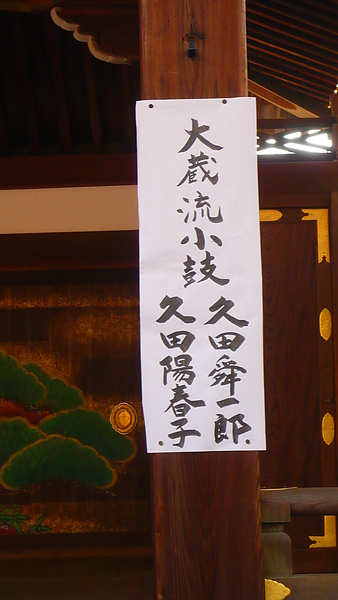 大蔵流小鼓
久田舜一郎
久田陽春子